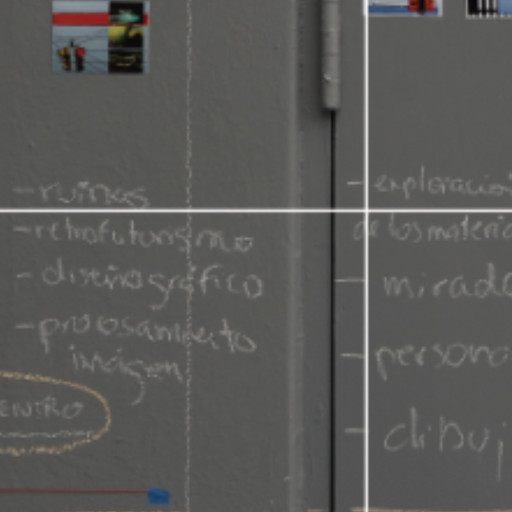 - ruinas
- retrofuturismo
- diseño gráfico
- procesamiento
imagen
ENTRO
- exploracion
de los materia
- mirada
- persona
- dibuj